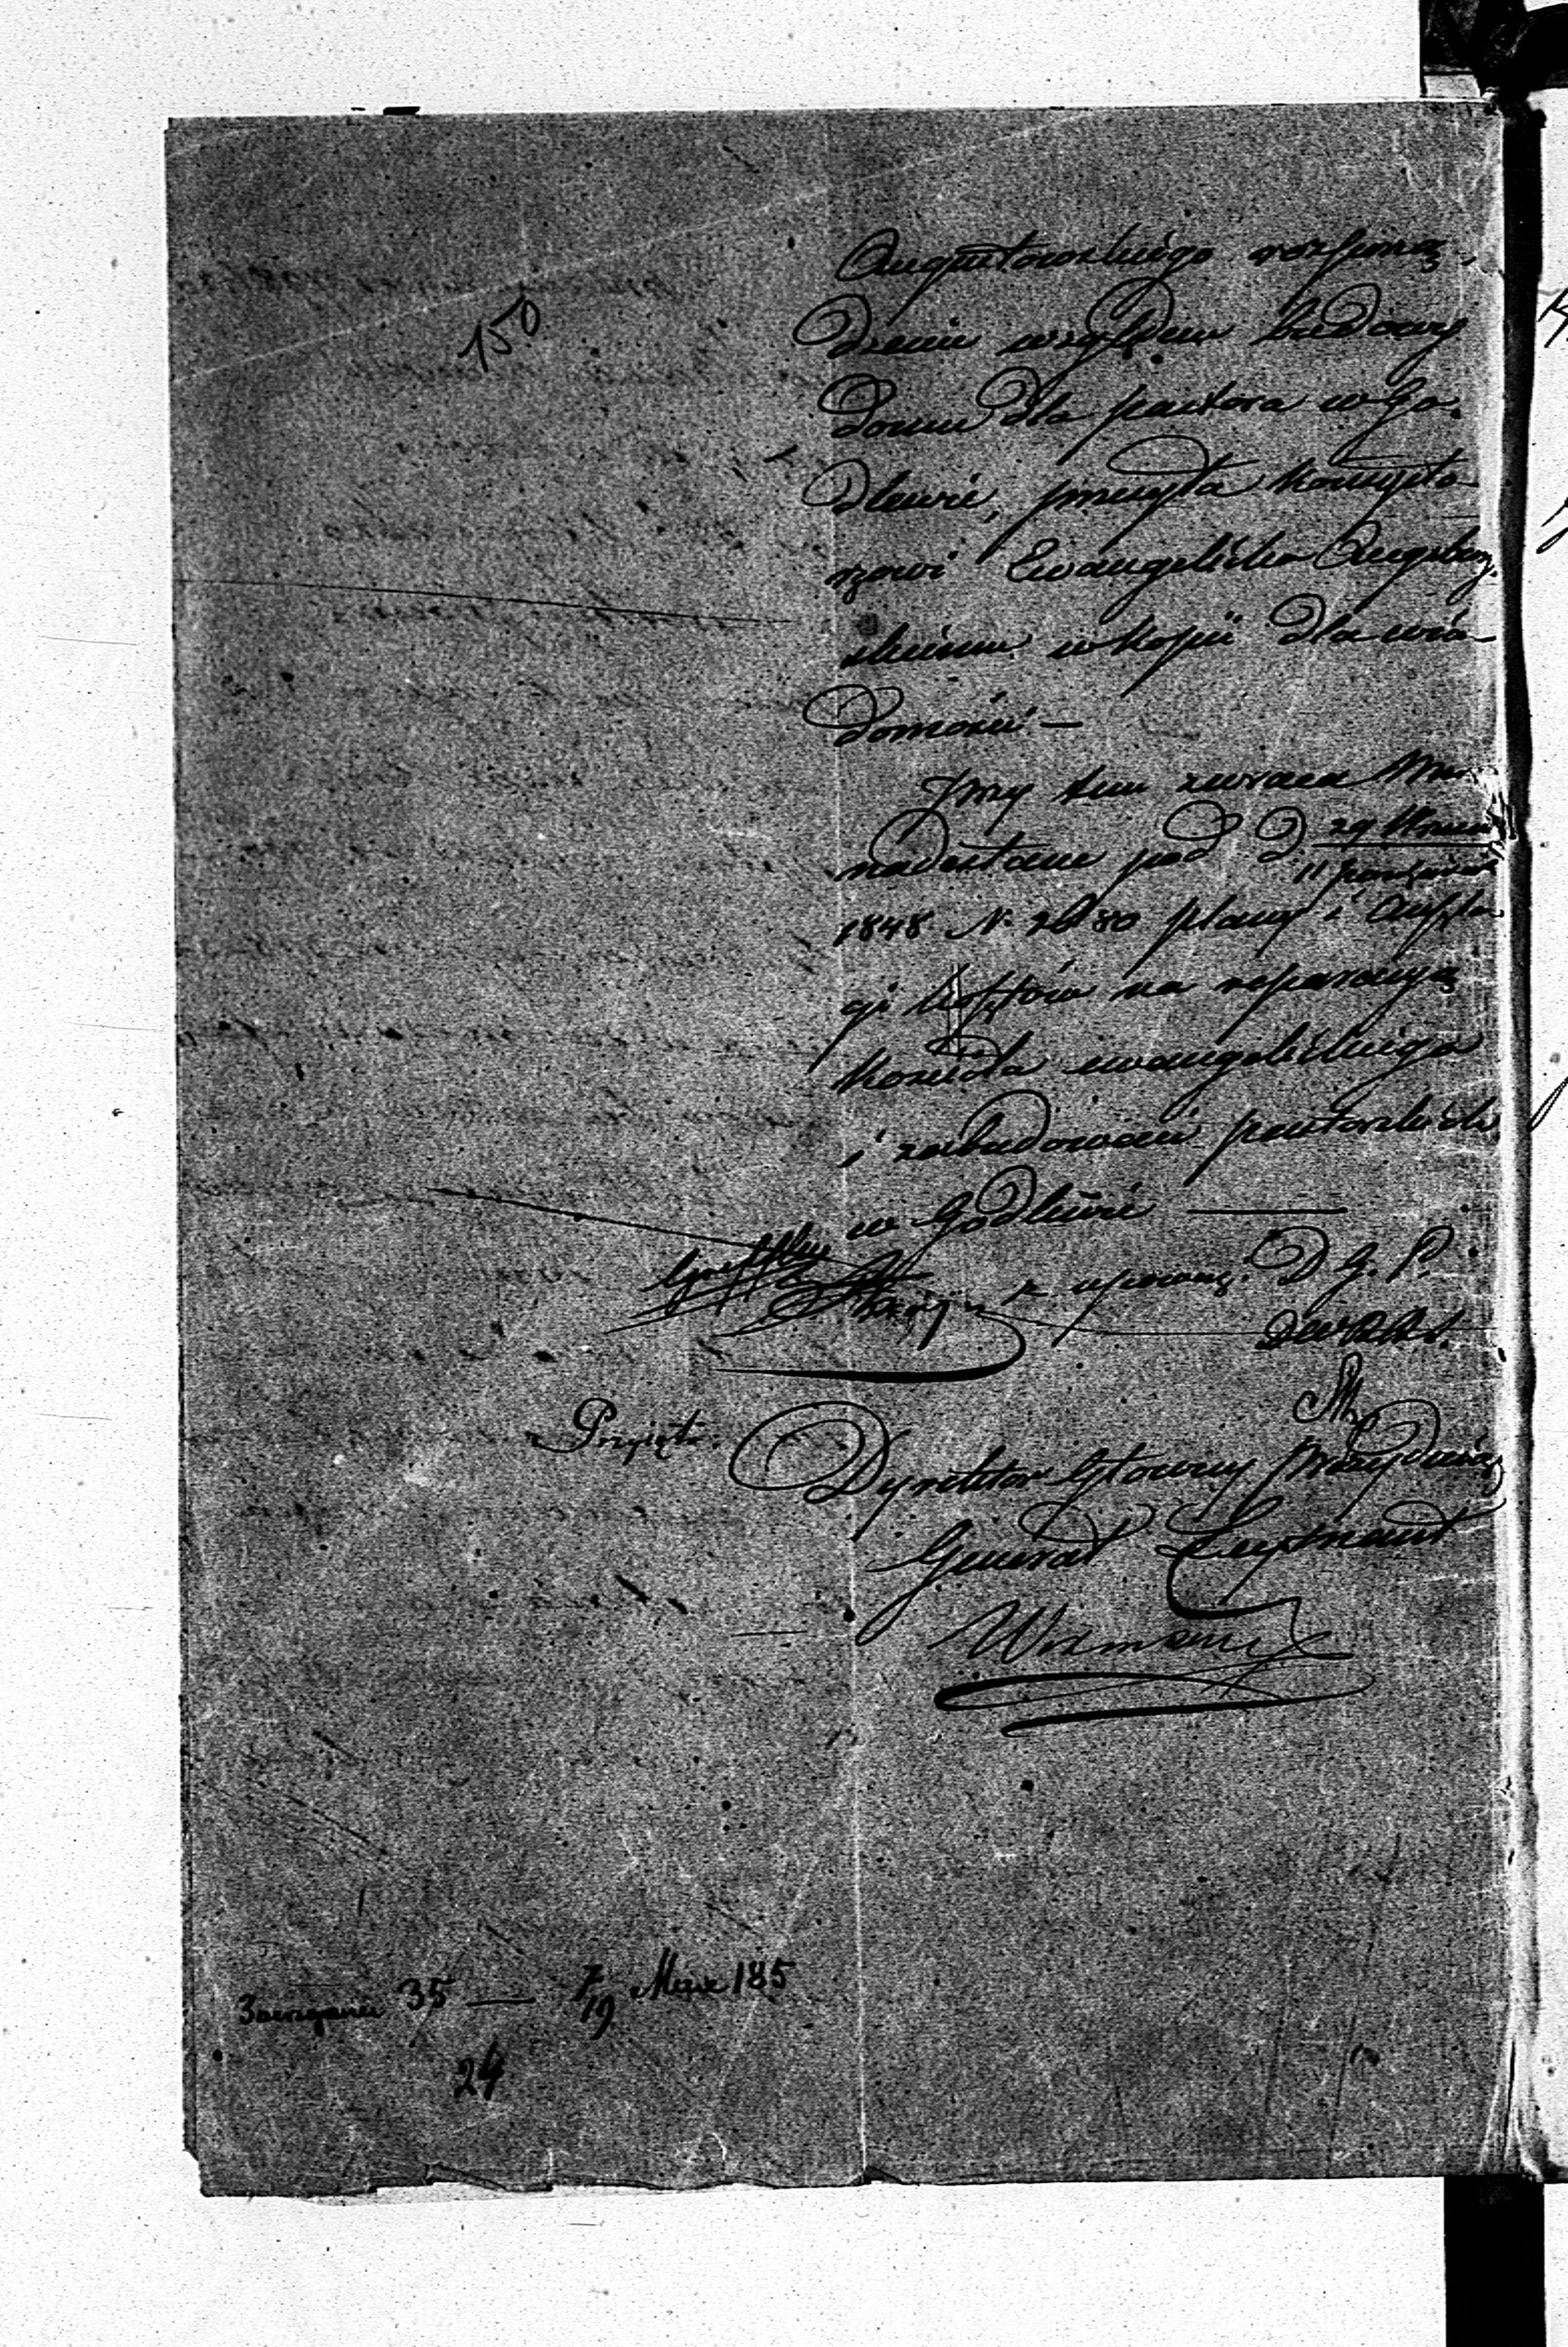 150
Augustowskiego rozporzą-
dzenie względem budowy
domu dla pastora w Go-
dlewie, przesyła Konsysto-
rzowi Ewangelicko Augsburg
skiemu w kopii dla wia-
domości —
Przy tem zwraca Mu
nadesłane pod d 29 Wrześ
11 Paździer
1848 N. 2680 plany i Anszla-
gi kosztów na reparacyą
Kościoła ewangelickiego
i zabudowań pastorskich
w Godlewie —
D. G. P.
Przyjęto:
Dyrektor Główny Prezydując
Generał Leytnant
35 — 7/19 185
24